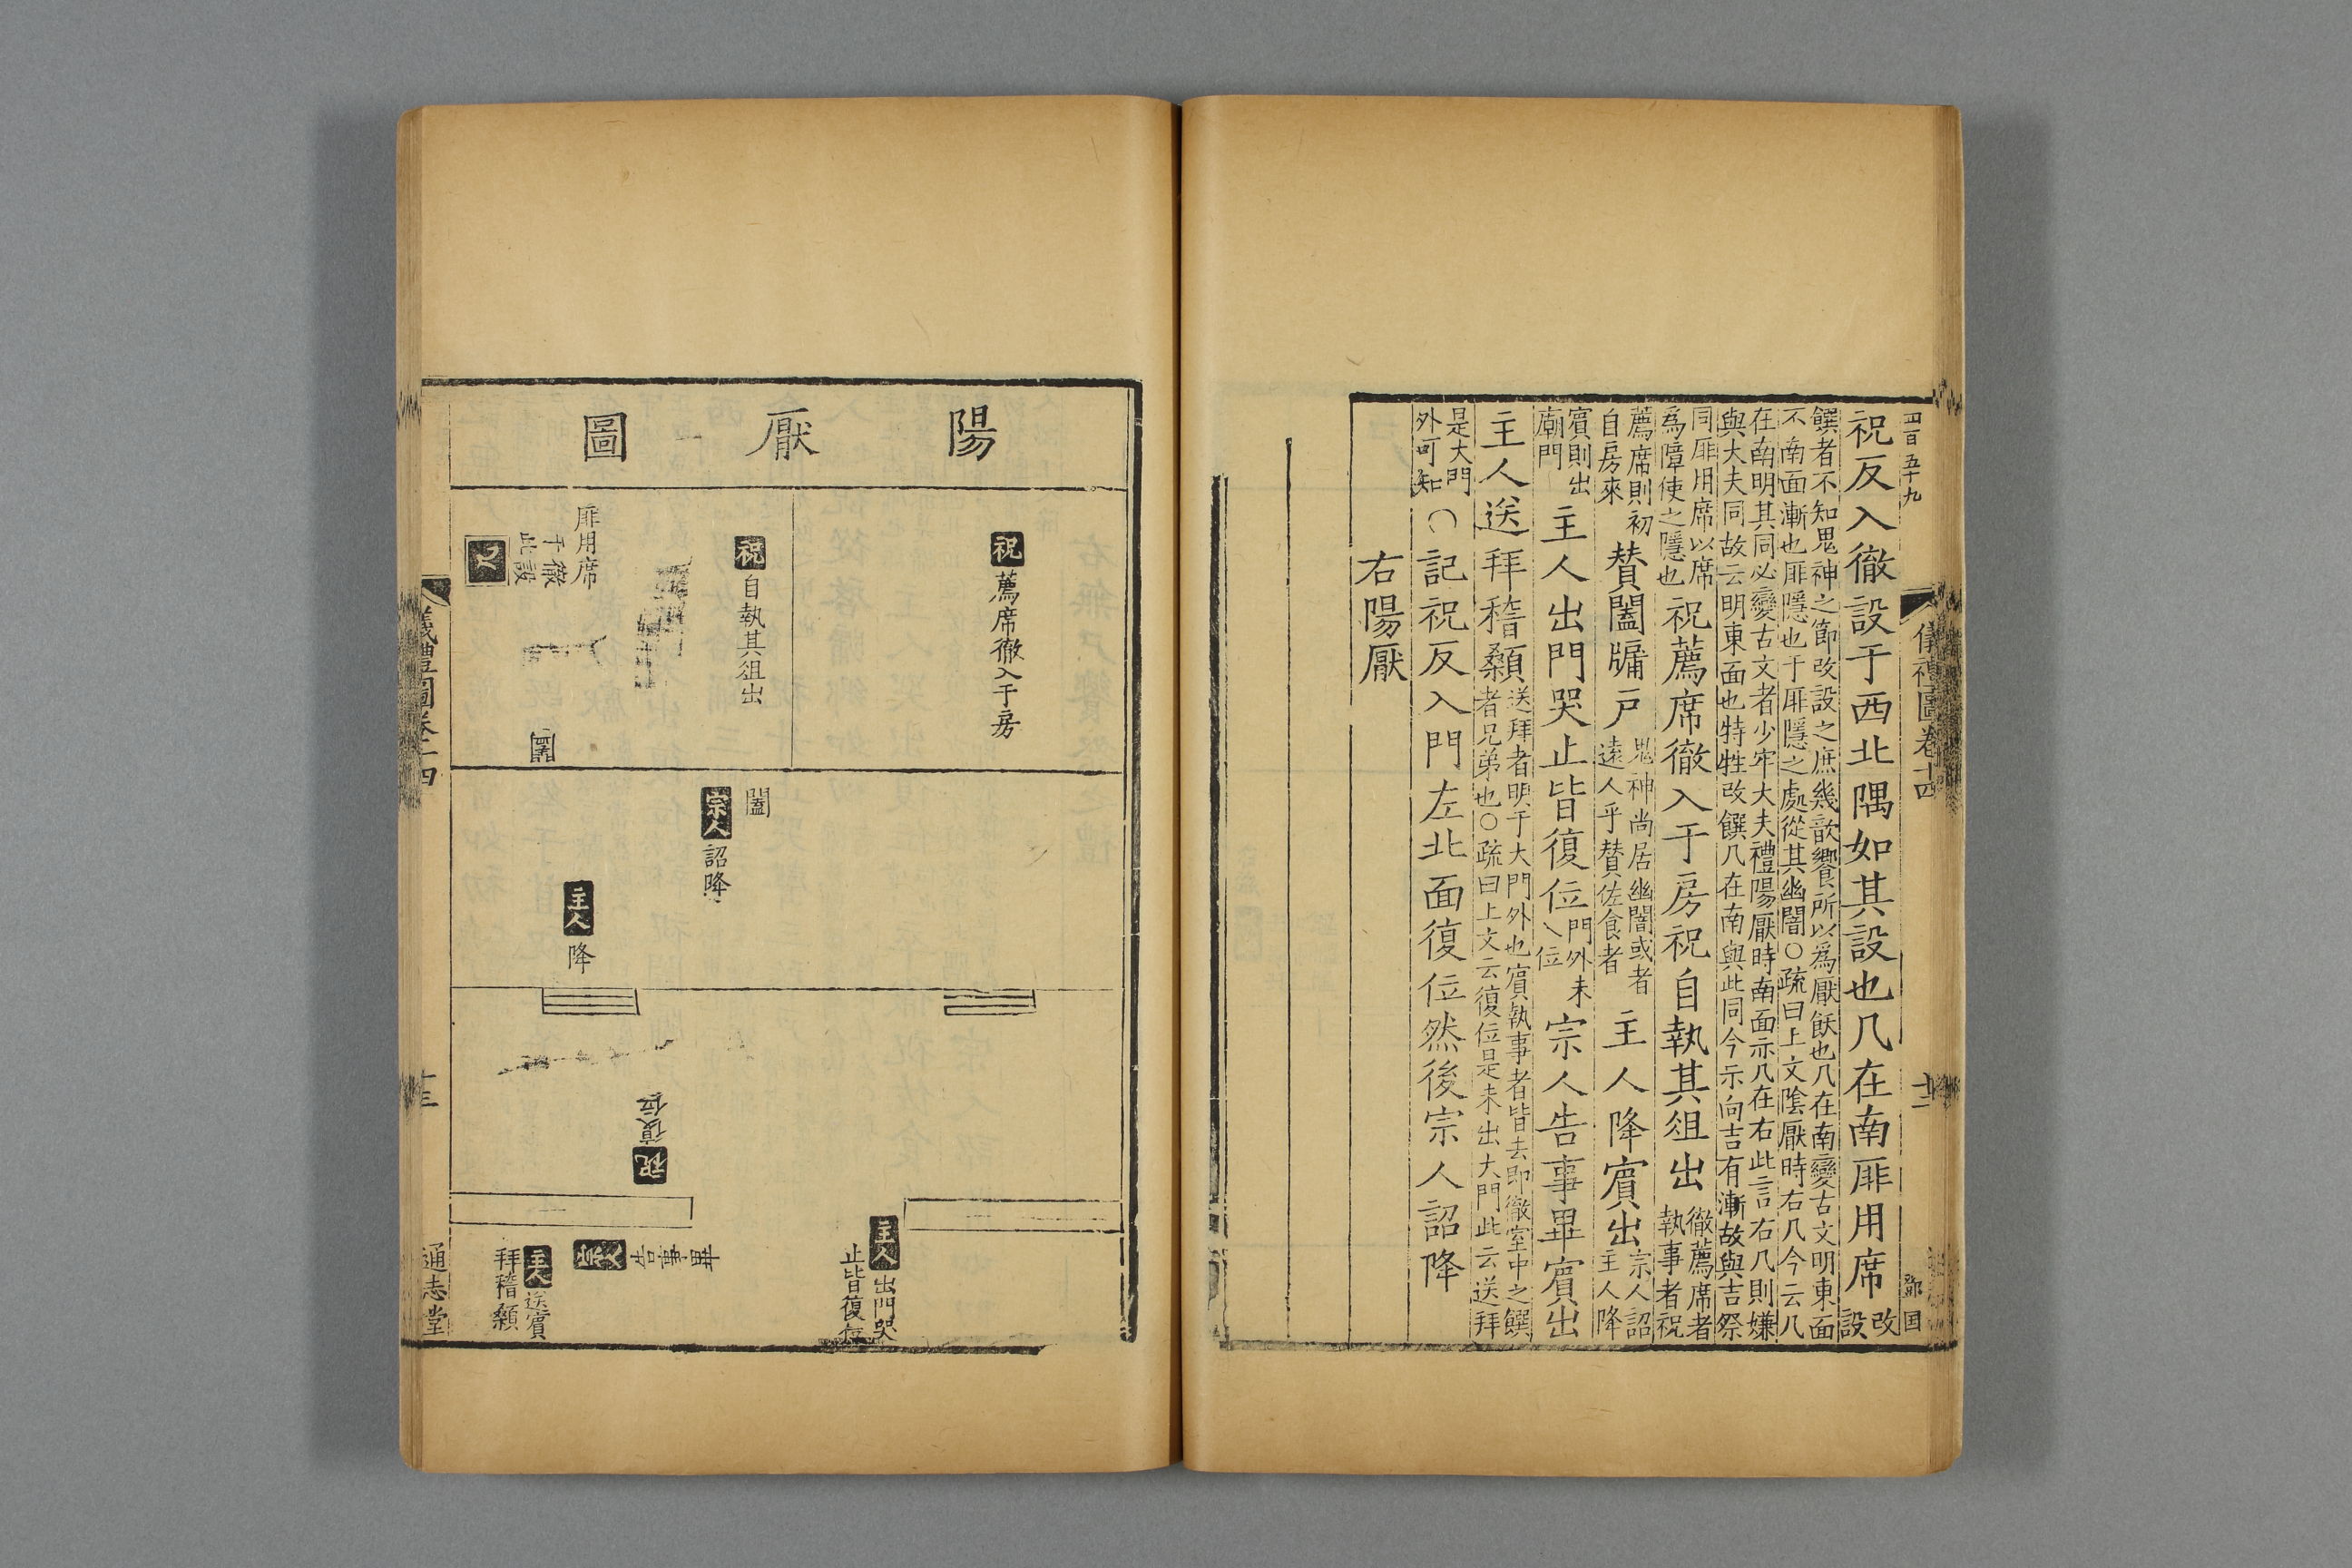 四百五十九
儀禮圖卷十四
鄧国
祝反入徹設于西北隅如其設也几在南厞用席改設
饌者不知鬼神之節改設之庶幾歆饗所以爲厭飫也几在南變古文明東面
不南面漸也厞隱也于厞隱之處從其幽闇○疏曰上文陰厭時右几今云几
在南明其同必變古文者少牢大夫禮陽厭時南面示几在右此言右几則嫌
與大夫同故云明東面也特牲改饌几在南與此同今示向吉有漸故與吉祭
同厞用席以席
爲障使之隱也
祝薦席徹入于房祝自執其俎出徹薦席者
執事者祝
薦席則初
自房來
贊闔牖戸鬼神尚居幽闇或者
遠人乎贊佐食者
主人降賓出宗人詔
主人降
賓則出
廟門
主人出門哭止皆復位門外未
入位
宗人告事畢賓出
主人送拜稽顙送拜者明于大門外也賓執事者皆去即徹室中之饌
者兄弟也○疏曰上文云復位是未出大門此云送拜
是大門
外可知
○記祝反入門左北面復位然後宗人詔降
右陽厭
陽厭圖
祝薦席徹入于房
祝自執其俎出
厞用席
于徹
此設
几
闔
闔
宗人詔降
主人降
祝復位
主人出門哭
止皆復位
宗人告事畢
主人送賓
拜稽顙
儀禮圖卷十四
十三
通志堂